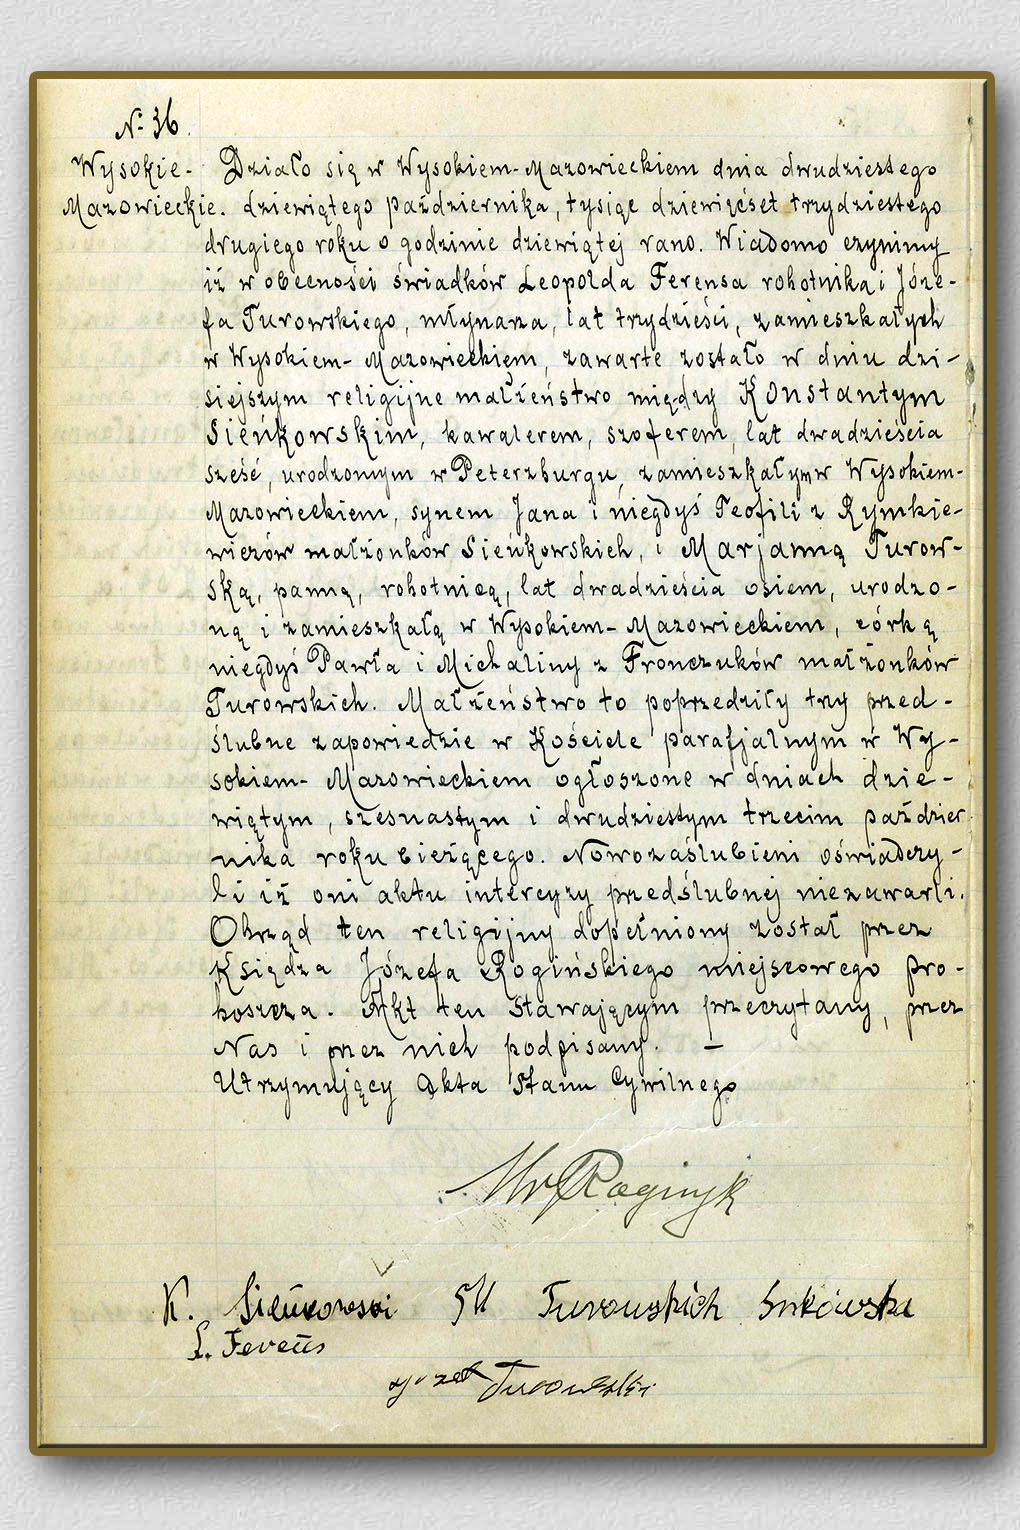 № 36.
Wysokie- Działo się w Wysokiem-Mazowieckiem dnia dwudziestego
Mazowieckie. dziewiątego października, tysiąc dziewięćset trzydziestego
drugiego roku o godzinie dziewiątej rano. Wiadomo czynimy
iż w obecności świadków Leopolda Ferensa robotnika i Józe-
fa Turowskiego, młynarza, lat trzydzieści, zamieszkałych
w Wysokiem-Mazowieckiem, zawarte zostało w dniu dzi-
siejszym religijne małżeństwo między Konstantym
Sieńkowskim, kawalerem, szoferem, lat dwadzieścia
sześć, urodzonym w Peterzburgu, zamieszkałym w Wysokiem-
Mazowieckiem, synem Jana i niegdyś Teofili z Rymkie-
wiczów małżonków Sieńkowskich, i Marjanną Turow-
ską, panną, robotnicą, lat dwadzieścia osiem, urodzo-
ną i zamieszkałą w Wysokiem-Mazowieckiem, córką
niegdyś Pawła i Michaliny z Fronczuków małżonków
Turowskich. Małżeństwo to poprzedziły trzy przed-
ślubne zapowiedzie w Kościele parafjalnym w Wy-
sokiem-Mazowieckiem ogłoszone w dniach dzie-
wiątym, szesnastym i dwudziestym trzecim paździer
nika roku bieżącego. Nowozaślubieni oświadczy-
li iż oni aktu intercyzy przedślubnej niezawarli.
Obrząd ten religijny dopełniony został przez
Księdza Józefa Rogińskiego miejscowego pro-
boszcza. Akt ten stawającym przeczytany, przez
Nas i przez nich podpisany. —
Utrzymujący Akta Stanu Cywilnego
K. Sieńkowski Turowskich
L. Ferens
Józef Turowski